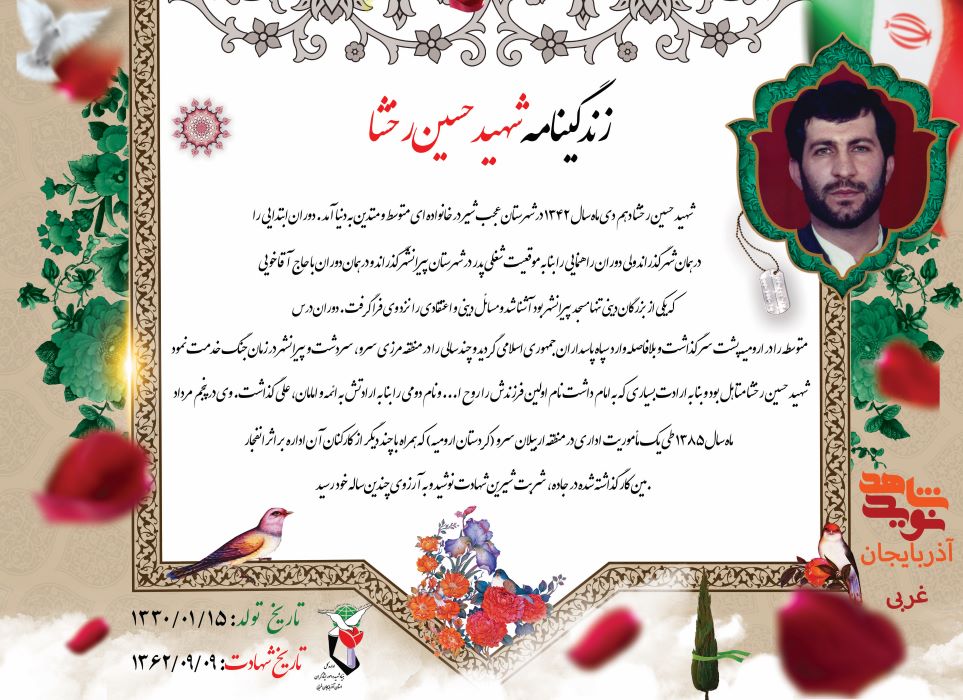 زندگینامه شهید حسین رخشا
شهید حسین رخشا دهم دی ماه سال ۱۳۴۲ در شهرستان عجب شیر در خانواده ای متوسط و متدین به دنیا آمد. دوران ابتدایی را
در همان شهر گذراند ولی دوران راهنمایی را بنا به موقعیت شغلی پدر در شهرستان پیرانشهر گذراند و در همان دوران با حاج آقا خویی
که یکی از بزرگان دینی تنها مسجد پیرانشهر بود آشنا شد و مسائل دینی و اعتقادی را نزد وی فرا گرفت. دوران درس
متوسطه را در ارومیه پشت سر گذاشت و بلافاصله وارد سپاه پاسداران جمهوری اسلامی گردید و چند سالی را در منطقه مرزی سرو، سردشت و پیرانشهر در زمان جنگ خدمت نمود
شهید حسین رخشا متاهل بود و بنا به ارادت بسیاری که به امام داشت نام اولین فرزندش را روح ا... و نام دومی را بنا به ارادتش به ائمه و امامان، علی گذاشت. وی در پنجم مرداد
ماه سال ۱۳۸۵ طی یک مأموریت اداری در منطقه اربیلان سرو (کردستان ارومیه) که همراه با چند دیگر از کارکنان آن اداره بر اثر انفجار
.مین کار گذاشته شده در جاده، شربت شیرین شهادت نوشید و به آرزوی چندین ساله خود رسید
نوید شاهد
آذربایجان
غربی
تاریخ تولد: ۱۳۳۰/۰۱/۱۵
تاریخ شهادت: ۱۳۶۲/۰۹/۰۹